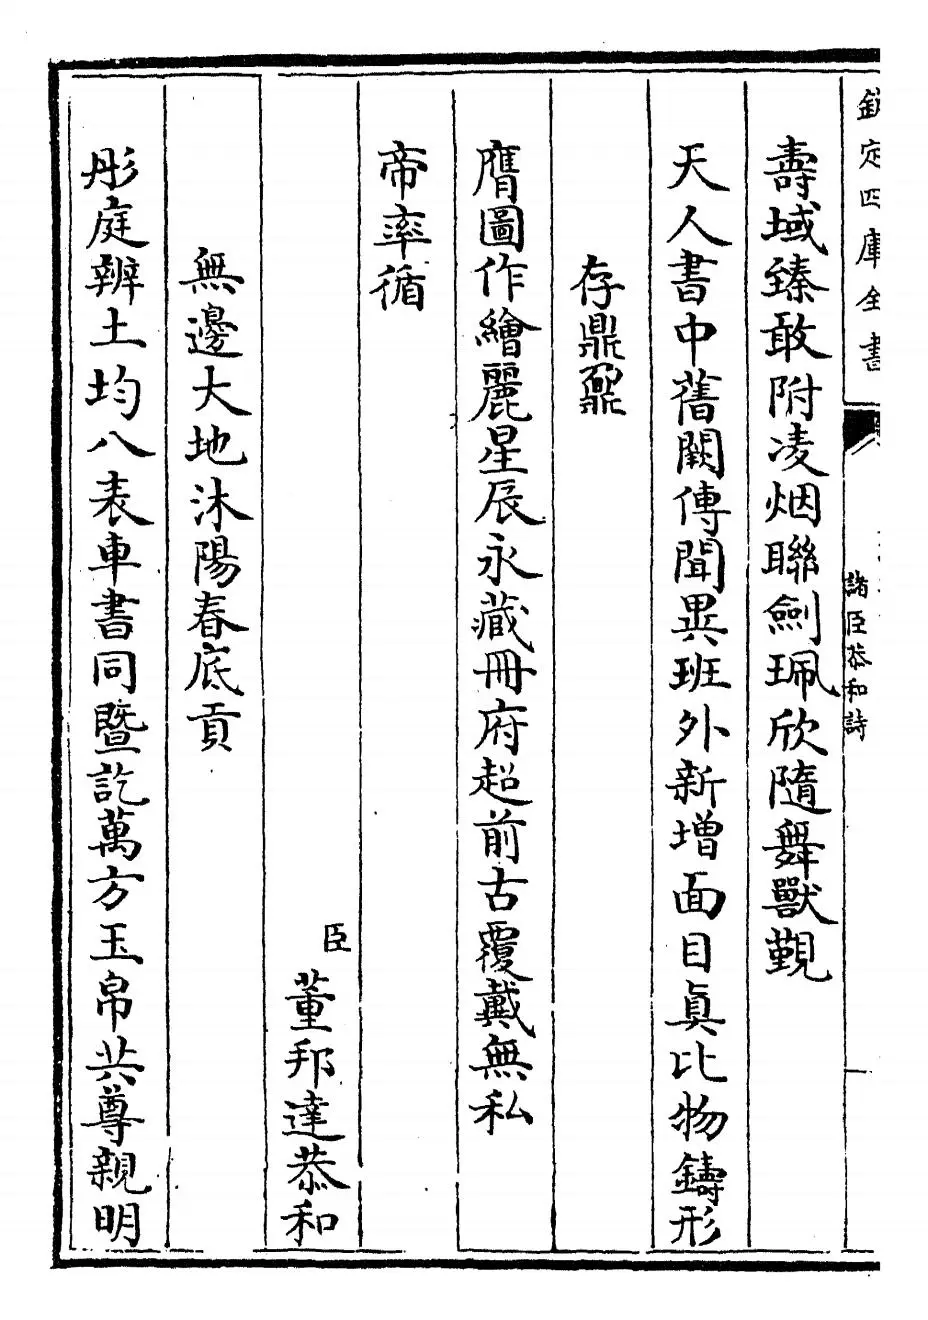 欽定四庫全書
諸臣恭和詩
壽域臻敢附凌烟聯劍珮欣隨舞獸覲
天人書中舊闕傳聞異班外新增面目眞比物鑄形
存鼎鼐
膺圖作繪麗星辰永藏冊府超前古覆戴無私
帝率循
臣董邦達恭和
無邊大地沐陽春底貢
彤庭辨土均八表車書同暨訖萬方玉帛共尊親明